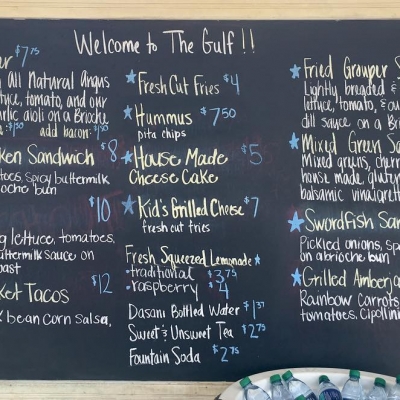 Welcome to The Gulf!!
$7.75
All Natural Angus
tomato, and our
aioli on a Brioche
add bacon: $1.50
Sandwich $8
spicy buttermilk
bun
$10
lettuce, tomatoes,
sauce on
$12
Tacos
bean corn salsa,
Fresh Cut Fries $4
Hummus $7.50
pita chips
House Made $5
Cheese Cake
Kid's Grilled Cheese $7
fresh cut fries
Fresh Squeezed Lemonade
•traditional $3.75
•raspberry $4
Dasani Bottled Water $1.37
Sweet & Unsweet Tea $2.75
Fountain Soda $2.75
Fried Grouper
Lightly breaded &
lettuce, tomato, &
dill sauce on a
Mixed Green
Mixed greens,
house made
balsamic
Swordfish
Pickled onions,
on a brioche bun
Grilled
Rainbow Carrots,
tomatoes,